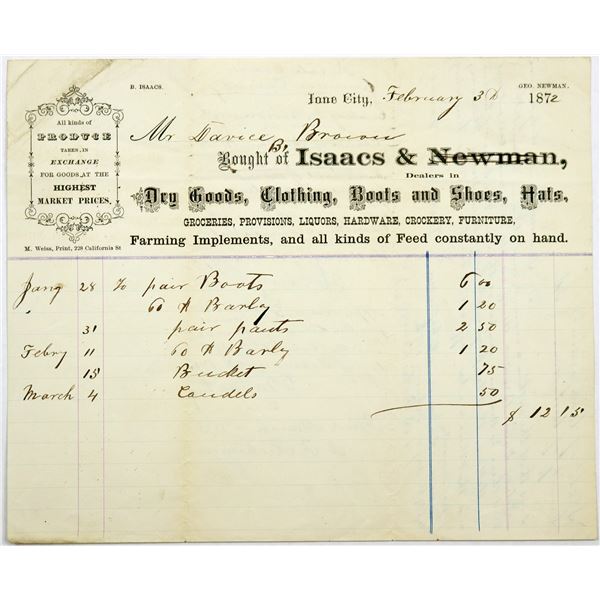 B. ISAACS.
GEO. NEWMAN.
Ione City, February 3d 1872
All kinds of
PRODUCE
TAKEN, IN
EXCHANGE
FOR GOODS, AT THE
HIGHEST
MARKET PRICES,
M. Weiss, Print, 229 California St
Mr Davice Brown
Bought of B. Isaacs & Newman,
Dealers in
Dry Goods, Clothing, Boots and Shoes, Hats,
GROCERIES, PROVISIONS, LIQUORS, HARDWARE, CROCKERY, FURNITURE,
Farming Implements, and all kinds of Feed constantly on hand.
Jany 28 To pair Boots 6 00
" 60 # Barly 1 20
31 pair pants 2 50
Febry 11 60 # Barly 1 20
15 Bucket 75
March 4 Candels 50
$ 12 15